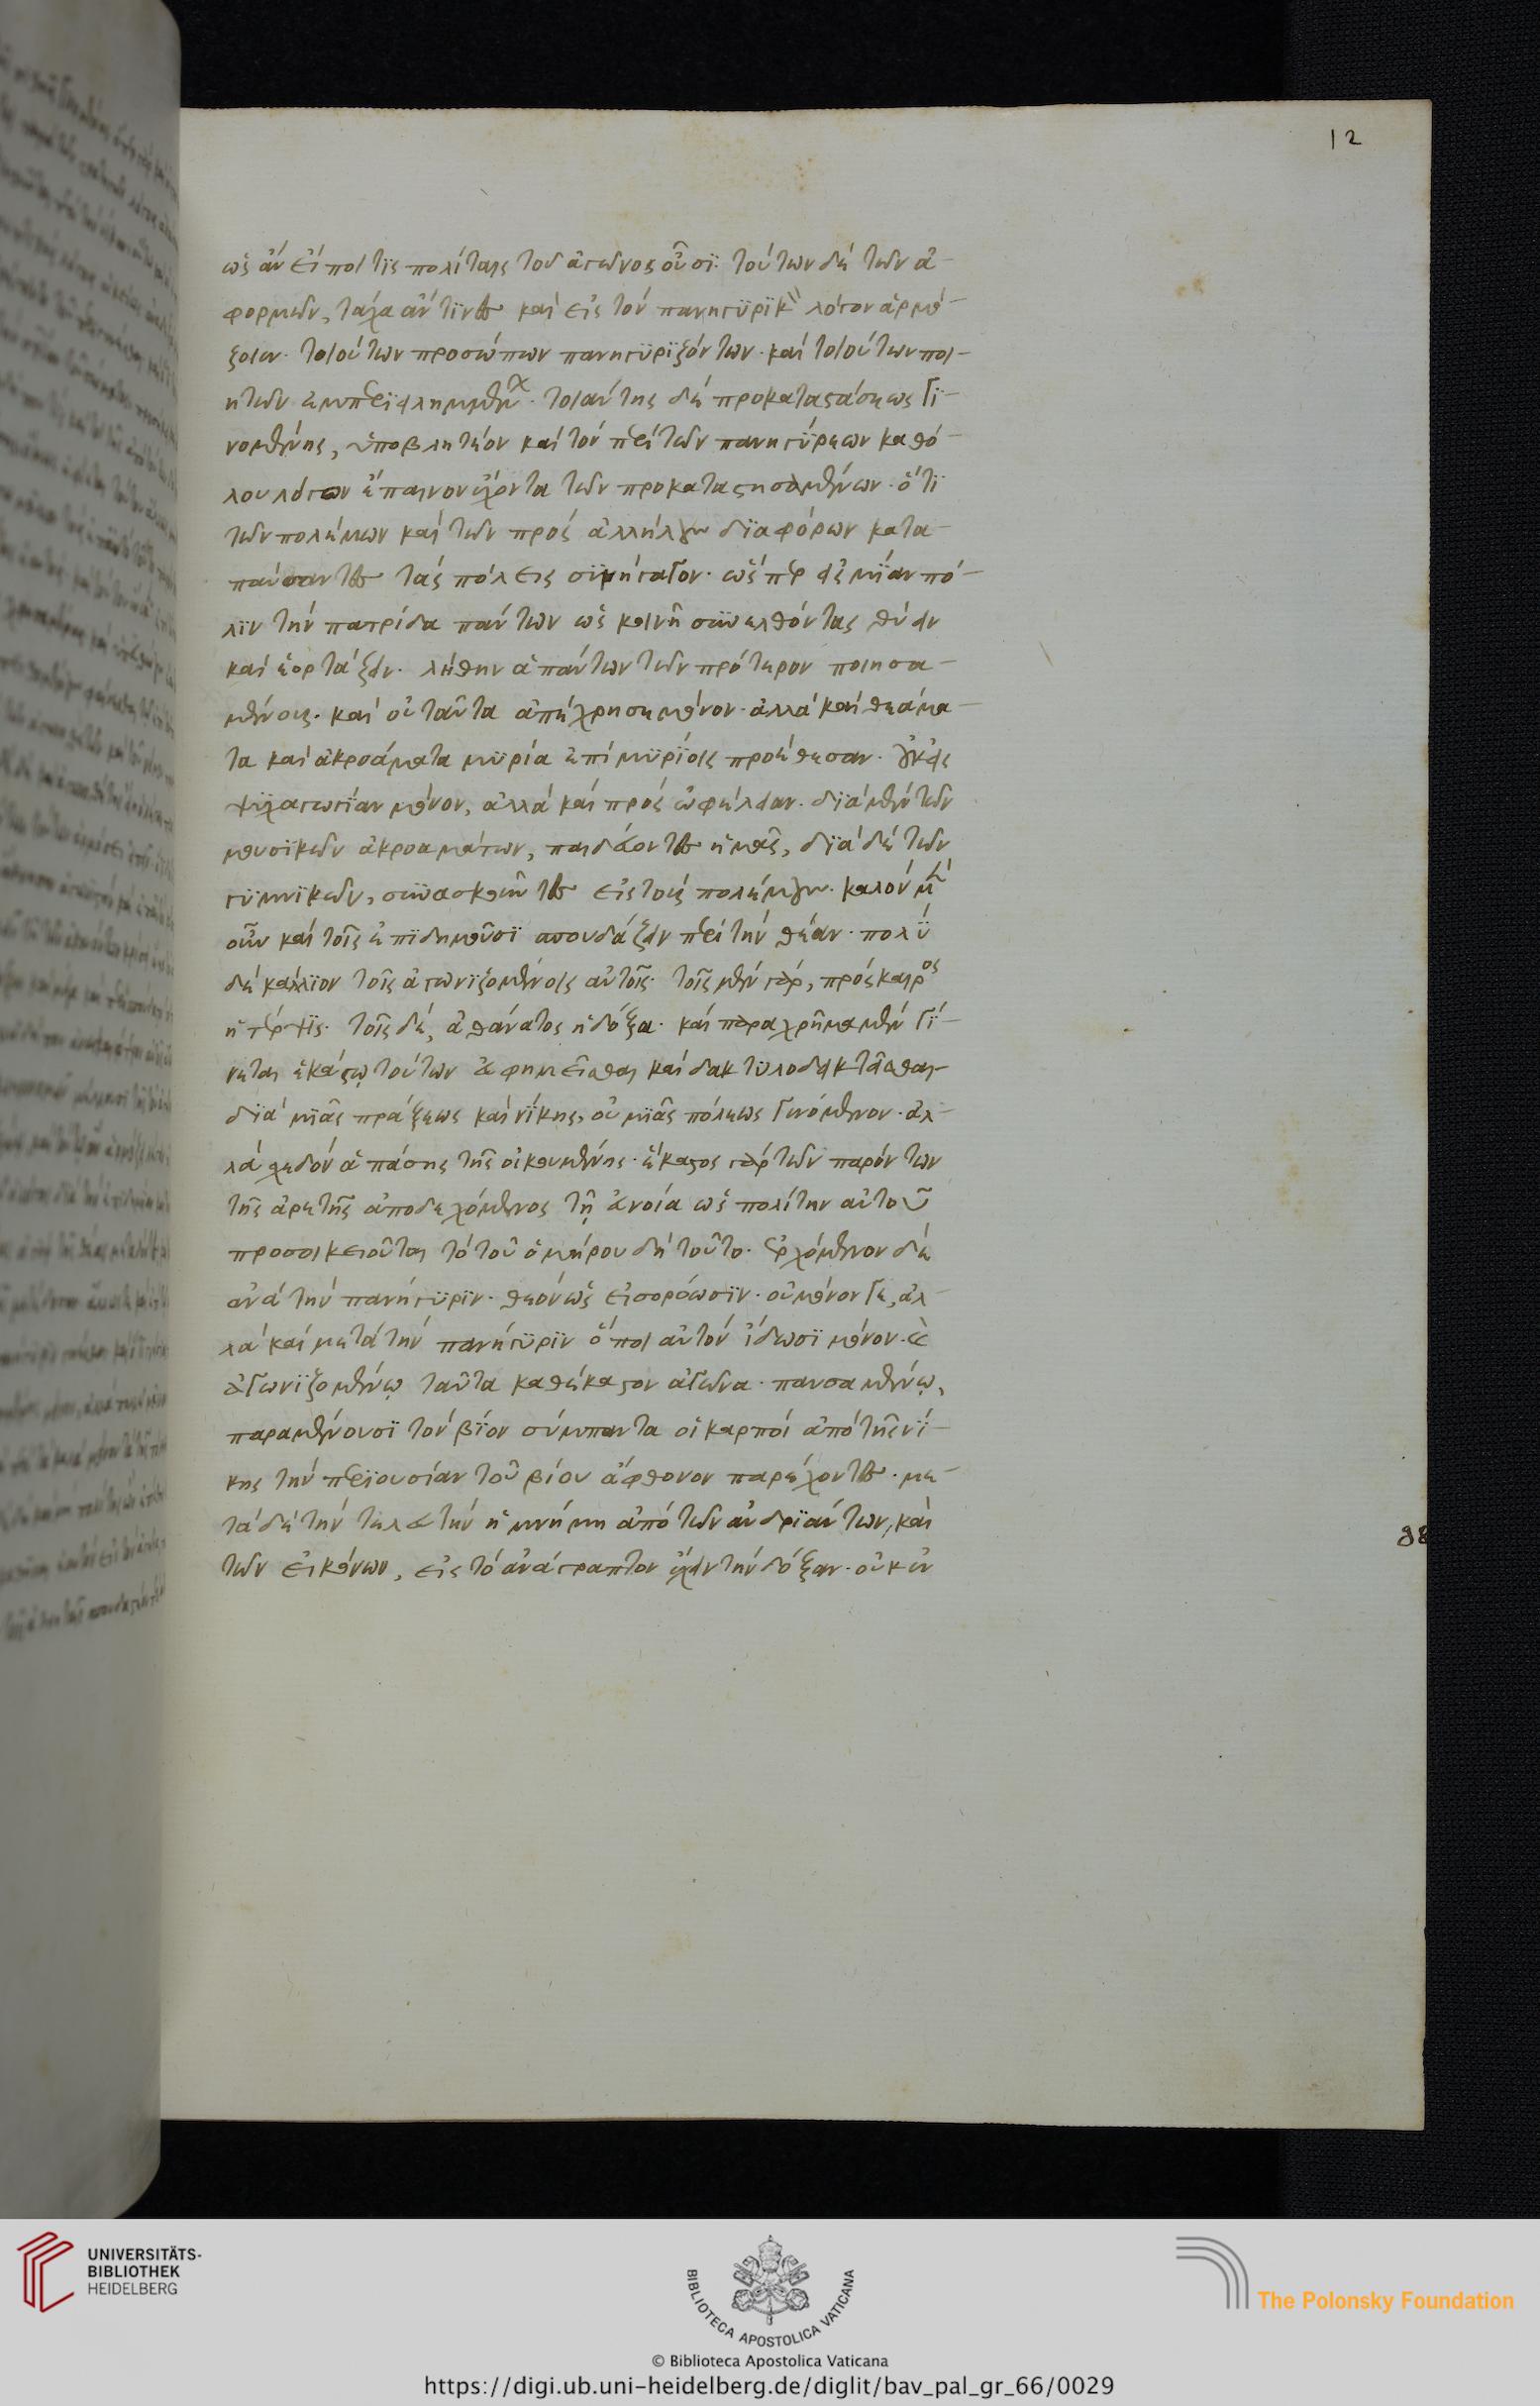 12
ὡς ἂν εἴποι τϊς πολίταις τοῦ ἀγῶνος οὖσϊ· τούτων δὲ τῶν ἀ-
φορμῶν, τάχα ἄν τϊνες καὶ εἰς τὸν πανηγϋρϊκὸν λόγον ἁρμό-
ζοιεν· τοιούτων προσώπων πανηγϋρϊζόντων· καὶ τοιούτων ποι-
ητῶν ἐμπεριειλημμένων· τοιαύτης δὲ προκαταστάσεως γϊ-
νομένης, ὑποβλητέον καὶ τὸν περὶ τῶν πανηγύρεων καθό-
λου λόγον ἔπαινον ἔχοντα τῶν προκαταστησαμένων· ὅτϊ
τῶν πολέμων καὶ τῶν πρὸς ἀλλήλους δϊαφόρων κατα-
παύσαντες τὰς πόλεις σϋνήγαγον· ὥσπερ εἰς μίαν πό-
λϊν τὴν πατρίδα πάντων ὡς κοινῇ σϋνελθόντας θύειν
καὶ ἑορτάζειν· λήθην ἁπάντων τῶν πρότερον ποιησα-
μένους· καὶ οὐ ταῦτα ἀπέχρησε μόνον· ἀλλὰ καὶ θεάμα-
τα καὶ ἀκροάματα μϋρία ἐπὶ μϋρίοις προέθεσαν· οὐκ εἰς
ψϋχαγωγίαν μόνον, ἀλλὰ καὶ πρὸς ὠφέλειαν· δϊὰ μὲν τῶν
μουσϊκῶν ἀκροαμάτων, παιδεύοντες ἡμᾶς, δϊὰ δὲ τῶν
γϋμνϊκῶν, σϋνασκοῦντες εἰς τοὺς πολέμους· καλὸν μὲν
οὖν καὶ τοῖς ἐπϊδημοῦσϊ σπουδάζειν περὶ τὴν θέαν· πολϋ
δὲ κάλλϊον τοῖς ἀγωνϊζομένοις αὐτοῖς· τοῖς μὲν γὰρ, πρόσκαιρος
ἡ τέρψϊς· τοῖς δὲ, ἀθάνατος ἡ δόξα· καὶ παραχρῆμα μὲν γί-
νεται ἑκάστῳ τούτων εὐφημεῖσθαι καὶ δακτϋλοδεικτεῖσθαι
δϊὰ μϊᾶς πράξεως καὶ νίκης, οὐ μϊᾶς πόλεως γινόμενον· ἀλ-
λὰ σχεδὸν ἁπάσης τῆς οἰκουμένης· ἕκαστος γὰρ τῶν παρόντων
τῆς ἀρετῆς ἀποδεχόμενος τῇ εὐνοία ὡς πολίτην αὐτοῦ
προσοικειοῦται τὸ τοῦ ὁμήρου δὴ τοῦτο· ἐρχόμενον δὲ
ἀνὰ τὴν πανήγϋρϊν· θεὸν ὡς εἰσορόωσϊν· οὐ μόνον γε, ἀλ-
λὰ καὶ μετὰ τὴν πανήγϋρϊν ὅποι αὐτὸν ἴδωσϊ μόνον· καὶ
ἀγωνϊζομένῳ ταῦτα καθέκαστον ἀγῶνα· παυσαμένῳ,
παραμένουσϊ τὸν βίον σύμπαντα οἱ καρποὶ ἀπὸ τῆς νί-
κης τὴν περϊουσίαν τοῦ βίου ἄφθονον παρέχοντες· με-
τὰ δὲ τὴν τελευτὴν ἡ μνήμη ἀπὸ τῶν ἀνδρϊάντων, καὶ
τῶν εἰκόνων, εἰς τὸ ἀνάγραπτον ἔχειν τὴν δόξαν· οὐκ ἐν
UNIVERSITÄTS-
BIBLIOTHEK
HEIDELBERG
BIBLIOTECA APOSTOLICA VATICANA
The Polonsky Foundation
© Biblioteca Apostolica Vaticana
https://digi.ub.uni-heidelberg.de/diglit/bav_pal_gr_66/0029